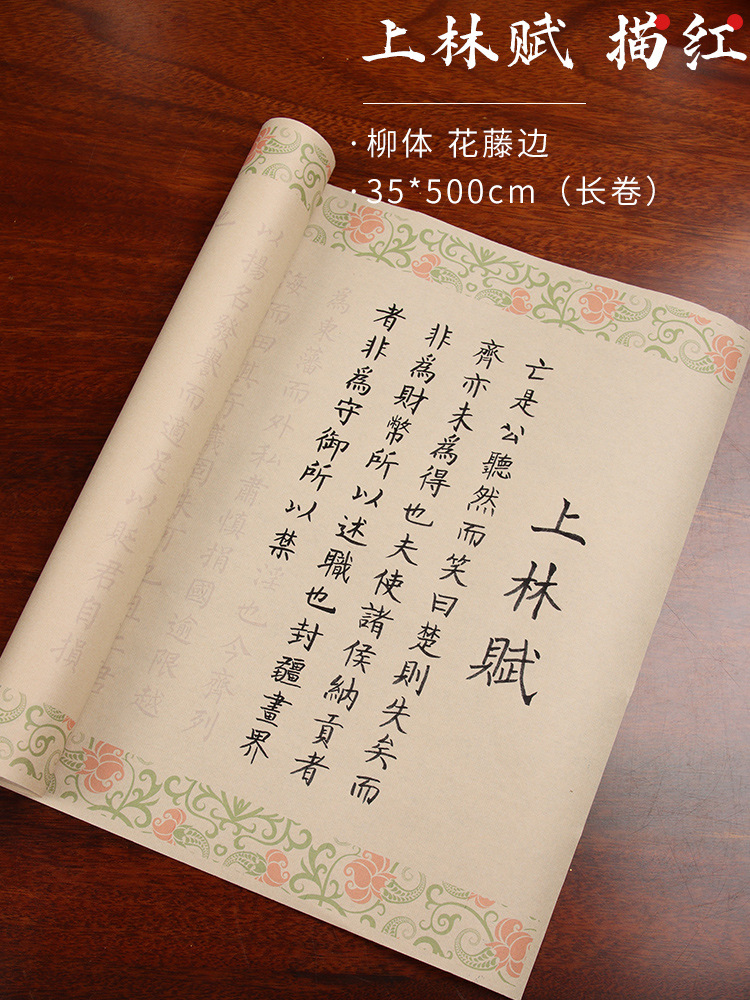 上林赋 描红
·柳体 花藤边
·35*500cm（长卷）
上林賦
亡是公聽然而笑曰楚則失矣而
齊亦未爲得也夫使諸侯納貢者
非爲財幣所以述職也封疆畫界
者非爲守御所以禁
淫也今齊列
爲東藩而外私肅慎捐國逾限越
海而田其於義固未可也且二君
以揚名發譽而適足以貶君自損